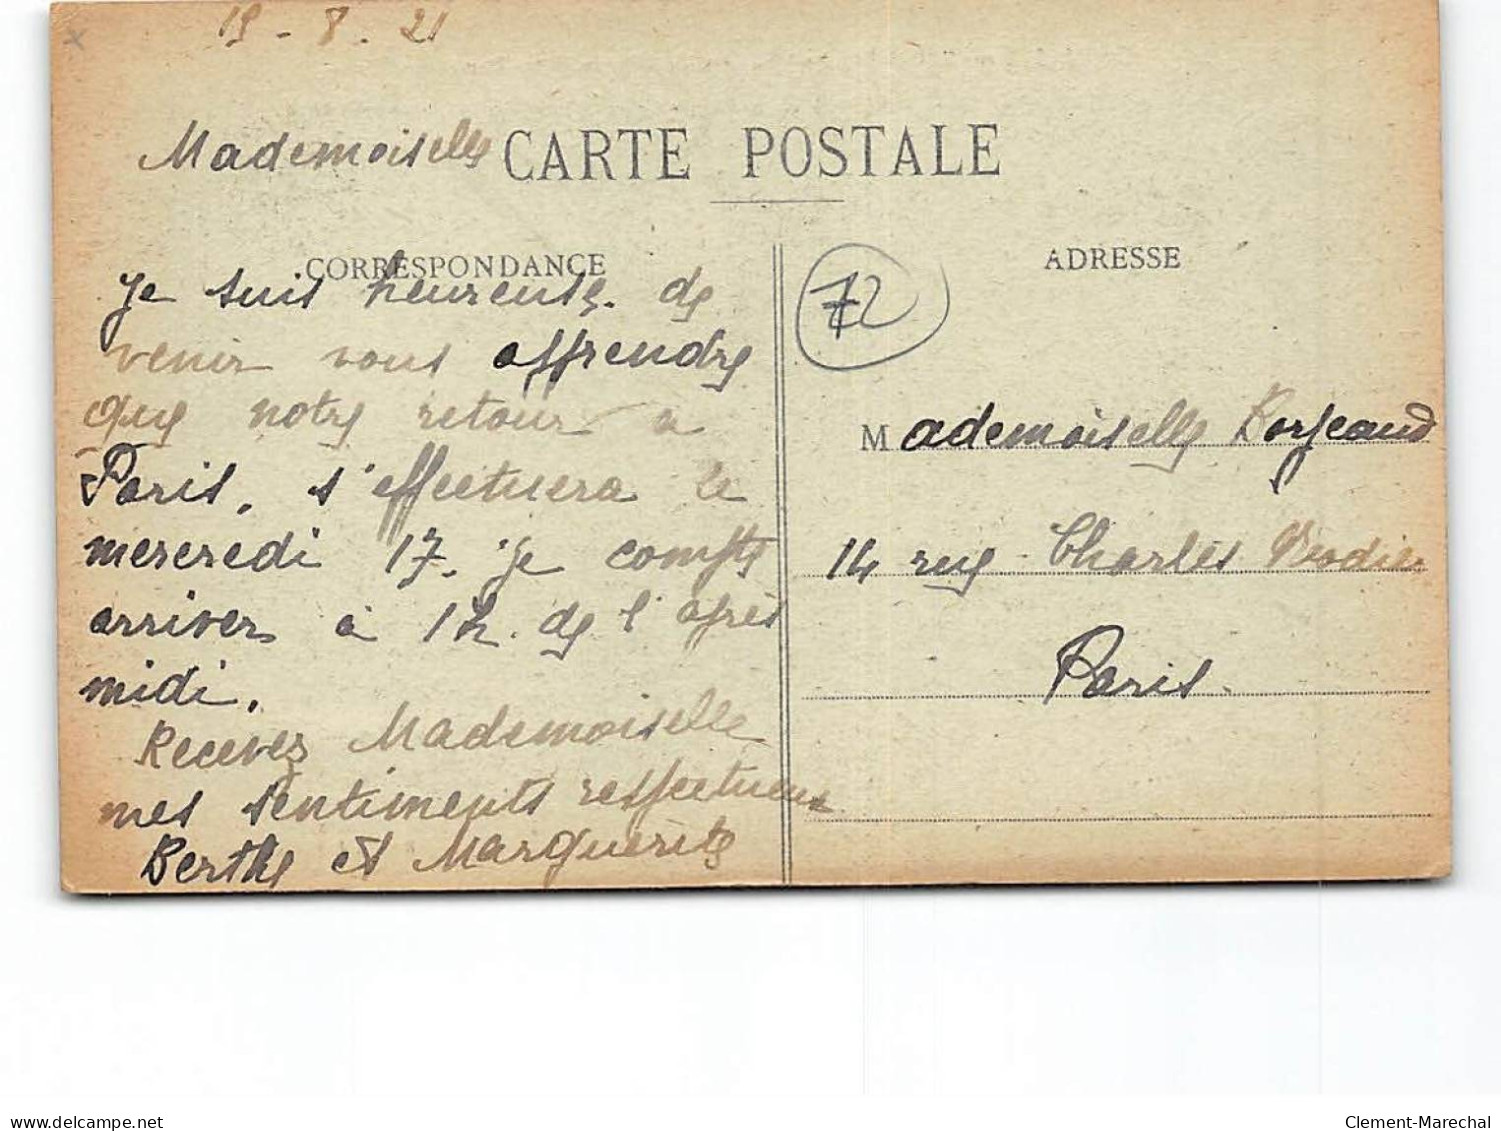 - 8 . 21
Mademoiselle CARTE POSTALE
CORRESPONDANCE
ADRESSE
72
Je suis heureuse de
venir vous apprendre
que notre retour a
Paris, s'effectuera le
mercredi 17. Je compte
arriver à 1h. de l'après
midi.
Recevez Mademoiselle
mes sentiments respectueux
Berthe et Marguerite
Mademoiselle
14 rue Charles Nodier
Paris.
www.delcampe.net
Clement-Marechal